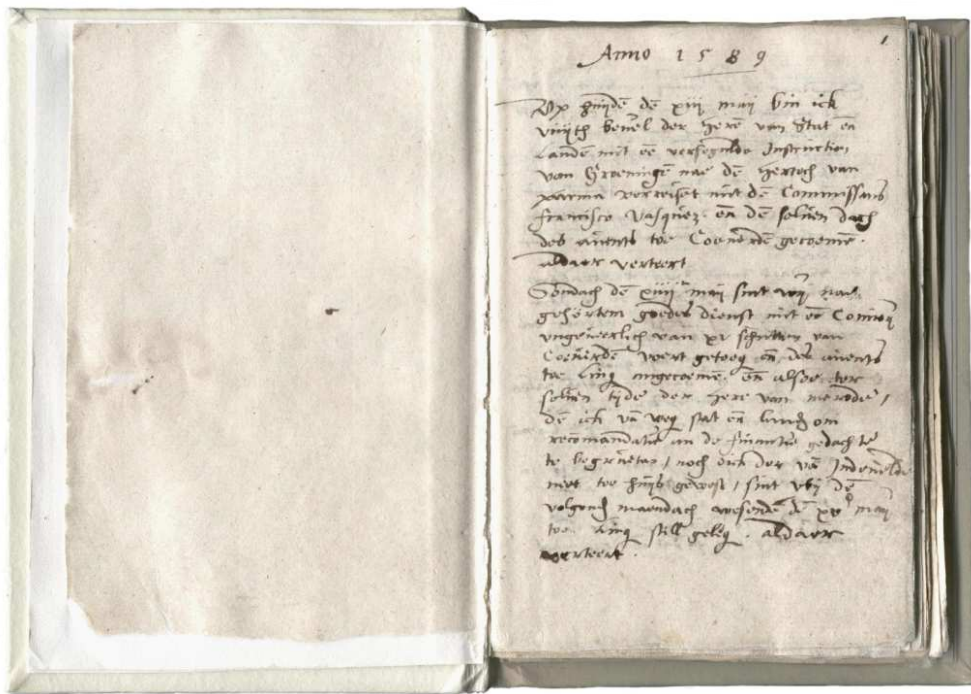 1
Anno 1589
Vp huijdē dē xiij maij bin ick
vuijth beuel der Herē van Stat en̄
Landē mit eē versegulde Instructio,
van Groeningē nae dē Hertoch van
parma verreiset mit dē Commissaris
francisco Vasquez. en̄ dē seluen dach
des auents toe Coeuerdē gecoemē.
aldaer verteert
Sondach dē xiiij maij sint wij nae
gehortem goedes dienst mit eē Conuoij
ungeuerlich van xv schutten van
Coeuerdē voert getoeg en̄ des auents
toe Ling angecoemē. en̄ alsoe ter
seluen tijde der Here van merode /
dē ick vā weg stat en̄ landt om
recomandatie an de finantie gedachte
te begroeten / noch oick der vā
niet toe huijs gewest / sint vbij dē
volgend maendach wesende dē xv maij
toe Ling still geleg. aldaer
verteert.